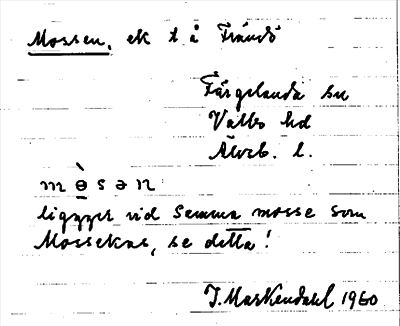 Mossen, ek t å
Färgelanda sn
Valbo hd
Älvsb. l.
m ə̀ s ə n
ligger vid samma mosse som
Mossekas, se detta!
J. Markendahl 1960